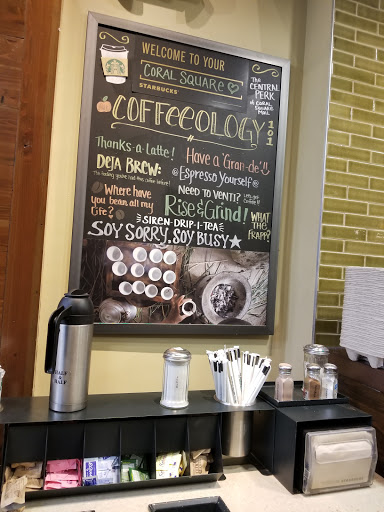 WELCOME TO YOUR
CORAL SQUARE
STARBUCKS
THE
CENTRAL
PERK
@ CORAL SQUARE
MALL
COFFEEOLOGY 101
Thanks-a-Latte!
DEJA BREW:
The feeling you've had this coffee before!
Have a 'Gran-de'!!
@Espresso Yourself@
Where have
you bean all my
life?
Need to VENTI?
Rise & Grind!
WHAT
THE
FRAPP?
SIREN-DRIP-I-TEA
SOY SORRY, SOY BUSY
HALF
&
HALF